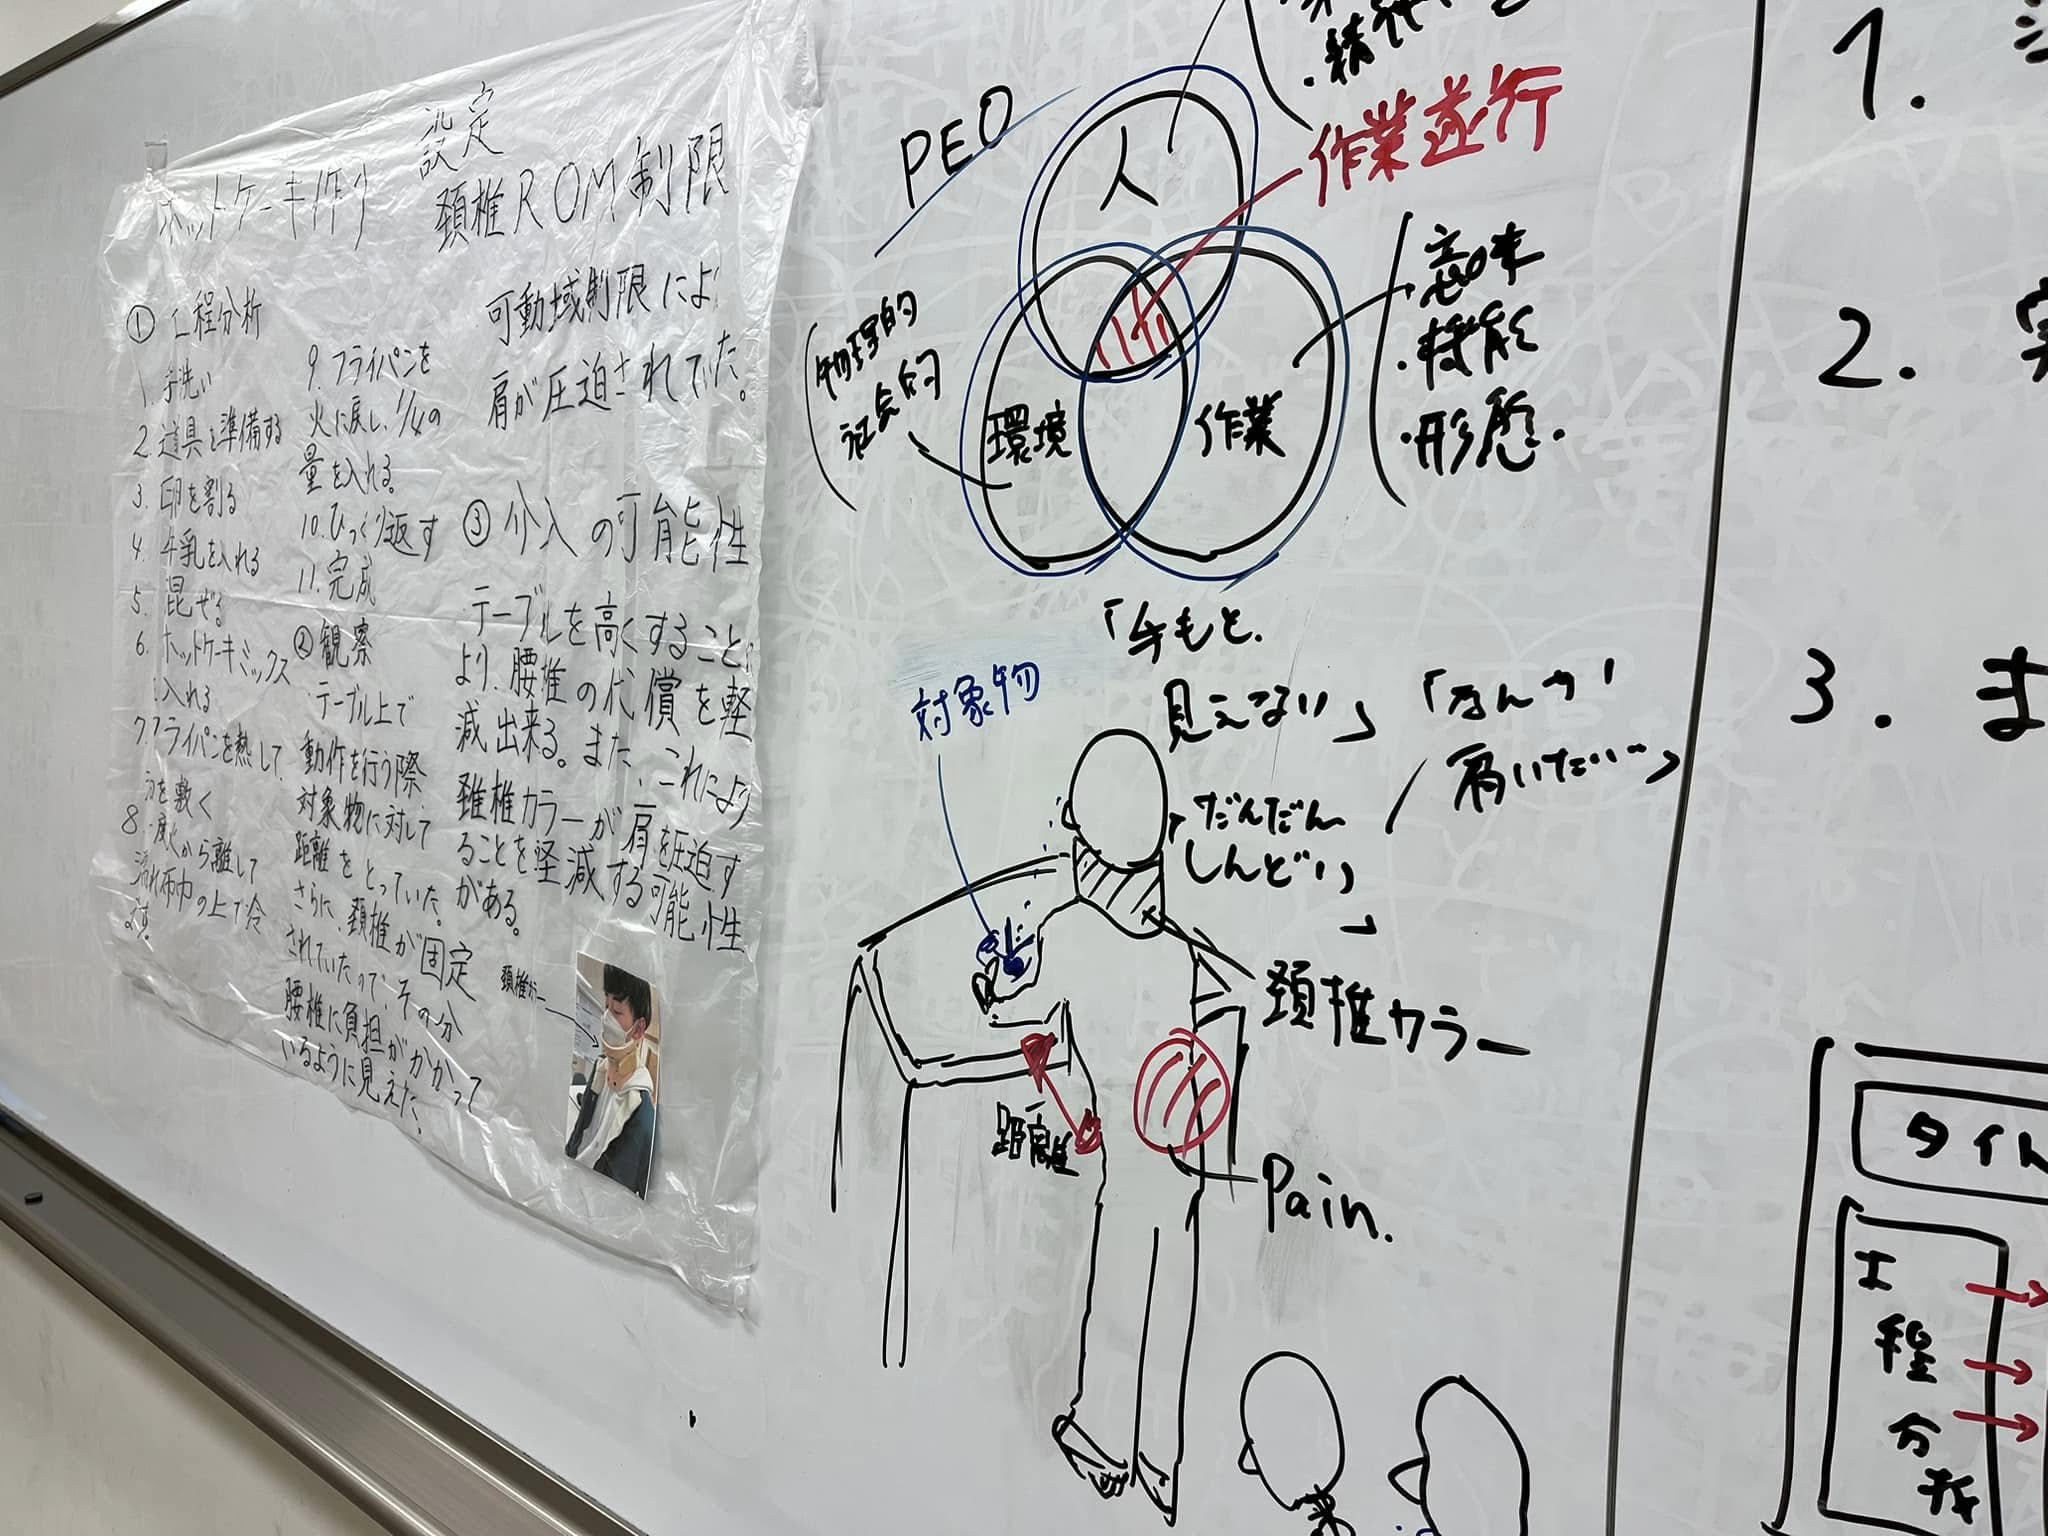 ホットケーキ作り
設定
頚椎ROM制限
① 工程分析
1. 手洗い
2. 道具を準備する
3. 卵を割る
4. 牛乳を入れる
5. 混ぜる
6. ホットケーキミックス
入れる
7. フライパンを熱して、
を敷く
8. から離して
布巾の上で冷
ます。
9. フライパンを
火に戻し、1/4の
量を入れる。
10. ひっくり返す
11. 完成
② 観察
テーブル上で
動作を行う際
対象物に対して
距離をとっていた。
さらに、頚椎が固定
されていたので、その分
腰椎に負担がかかって
いるように見えた。
可動域制限によ
肩が圧迫されていた。
③ 介入の可能性
テーブルを高くすること
より、腰椎の代償を軽
減出来る。また、これにより
頚椎カラーが肩を圧迫す
ることを軽減する可能性
がある。
頚椎カラー
PEO
人
環境
作業
作業遂行
物理的
社会的
意味
・機能
・形態.
「手もと.
見えない」
「なんか
肩いたい…」
だんだん
しんどい」
対象物
頚椎カラー
距離
Pain.
1.
2. 実
3. ま
タイト
工
程
分
析